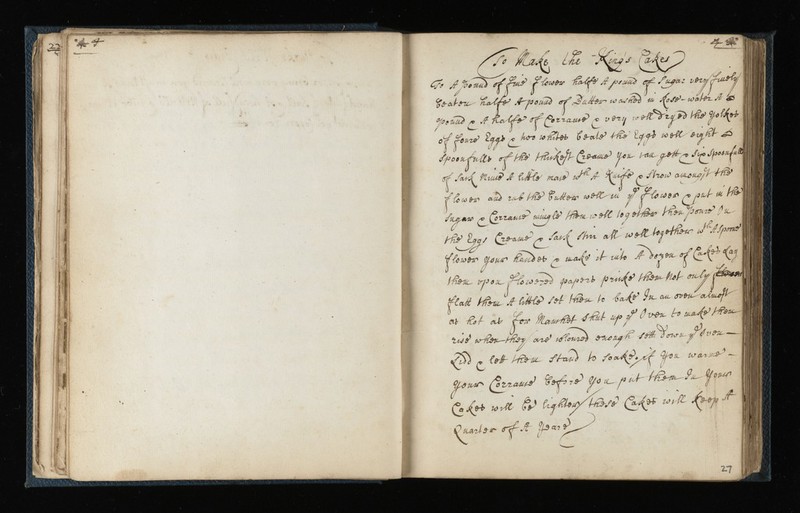 22
To Make the Kings Cakes
To A pound of fine flower halfe A pound of Sugar very finely
beaten halfe A pound of Butter washed in Rose-water A
pound & A halfe of Corrance & very well dryed the Yolkes
of foure Eggs & two whites beate the Eggs well eight
Spoonfulls of the thickest Creame you can gett & six spoonfulls
of Sack Mince A little mace wth A Knife & strow amongst the
flower and rub the butter well in ye flower & put in the
Sugar & Corrance mingle them well together then poure In
the Eggs Creame & Sack stirr all well together wth A spoone
flower your handes & make it into A dozen of Cakes Lay
them upon flowered papers pricke them Not only
flatt them A little set them to bake In an oven almost
as hot as for Manchet shut up ye Oven to make them
rise when they are coloured enough sett down ye Oven
Lidd & lett them stand to soake, if you warme
your Corrance before you put them In your
Cakes will be lighter these Cakes will keep A
Quarter of A yeare
27